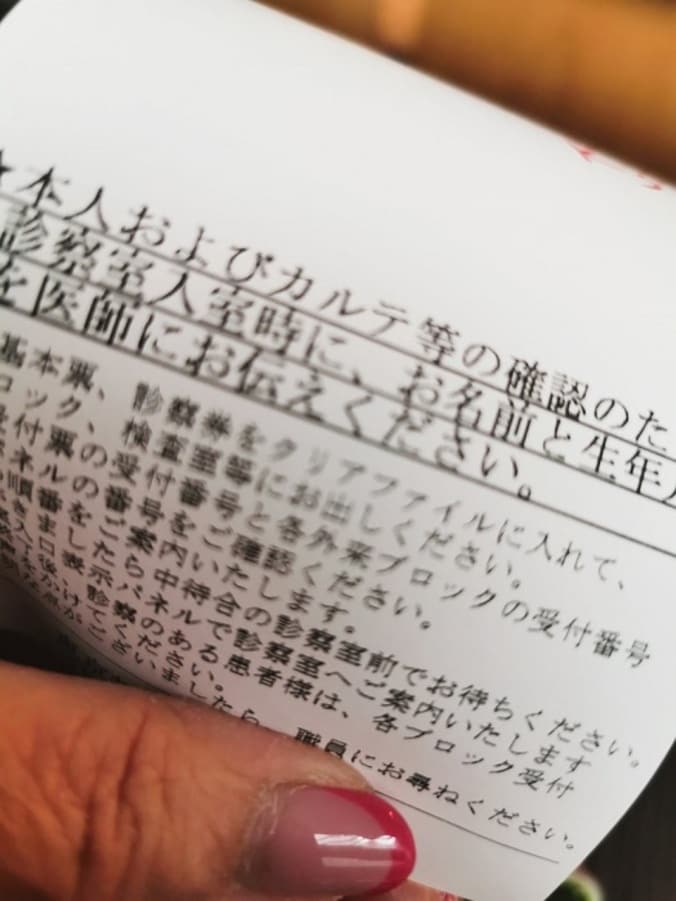 本人およびカルテ等の確認のた
診察室入室時に、お名前と生年月
を医師にお伝えください。
基本票、診察券をクリアファイルに入れて、
ロック、検査室等にお出しください。
受付票の受付番号と各外来ブロックの受付番号
ネルの番号をご確認ください。
順番をご案内いたします。
きましたら中待合の診察室前でお待ちください。
入口表示パネルで診察室へご案内いたします
後、診察のある患者様は、各ブロック受付
かけてください。
ございましたら、職員にお尋ねください。